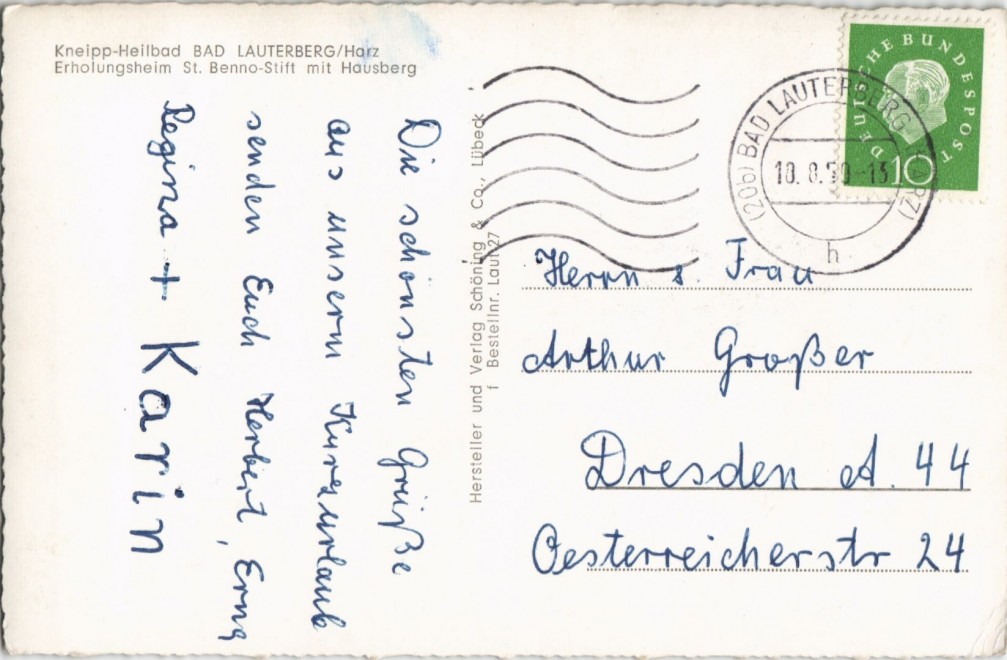 Kneipp-Heilbad BAD LAUTERBERG/Harz
Erholungsheim St. Benno-Stift mit Hausberg
Die schönsten Grüße
aus unserm Kurzurlaub
senden Euch Herbert, Erna
Regina + Karin
Hersteller und Verlag Schöning & Co., Lübeck
f Bestellnr. Laut 27
DEUTSCHE BUNDESPOST
10
(20b) BAD LAUTERBERG (HARZ)
10.8.59-13
h
Herrn u. Frau
Arthur Großer
Dresden A. 44
Oesterreicherstr 24